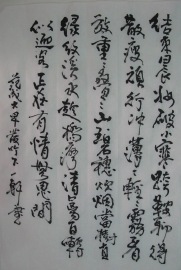 結束晨妝破小寒跨鞍聊得
散疲頑行沖薄々輕々霧看
放重々叠々山碧穗炊烟當樹直
綠紋溪水趁橋灣清禽百囀
似迎客正在有情無思間
范成大早發竹下 郭